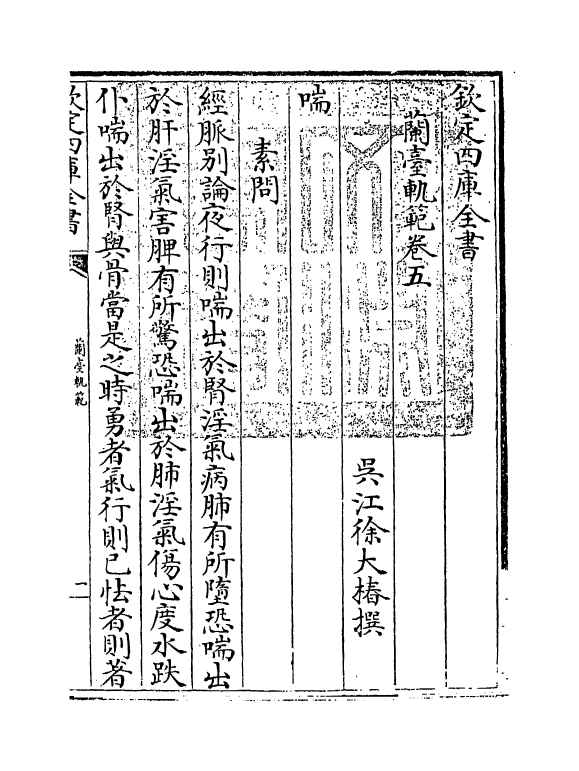 欽定四庫全書
蘭臺軌範卷五
吳江徐大椿撰
喘
素問
經脈別論夜行則喘出於腎淫氣病肺有所墮恐喘出
於肝淫氣害脾有所驚恐喘出於肺淫氣傷心度水跌
仆喘出於腎與骨當是之時勇者氣行則已怯者則著
欽定四庫全書
蘭臺軌範